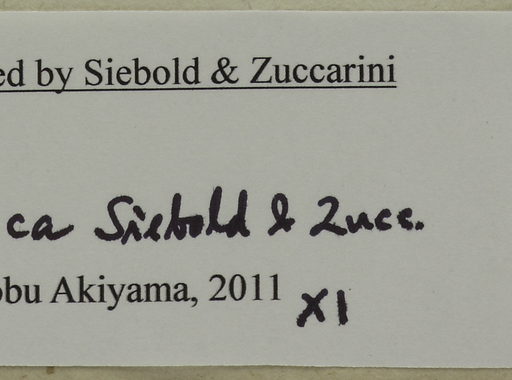 ed by Siebold & Zuccarini
ca Siebold & Zucc.
obu Akiyama, 2011 XI